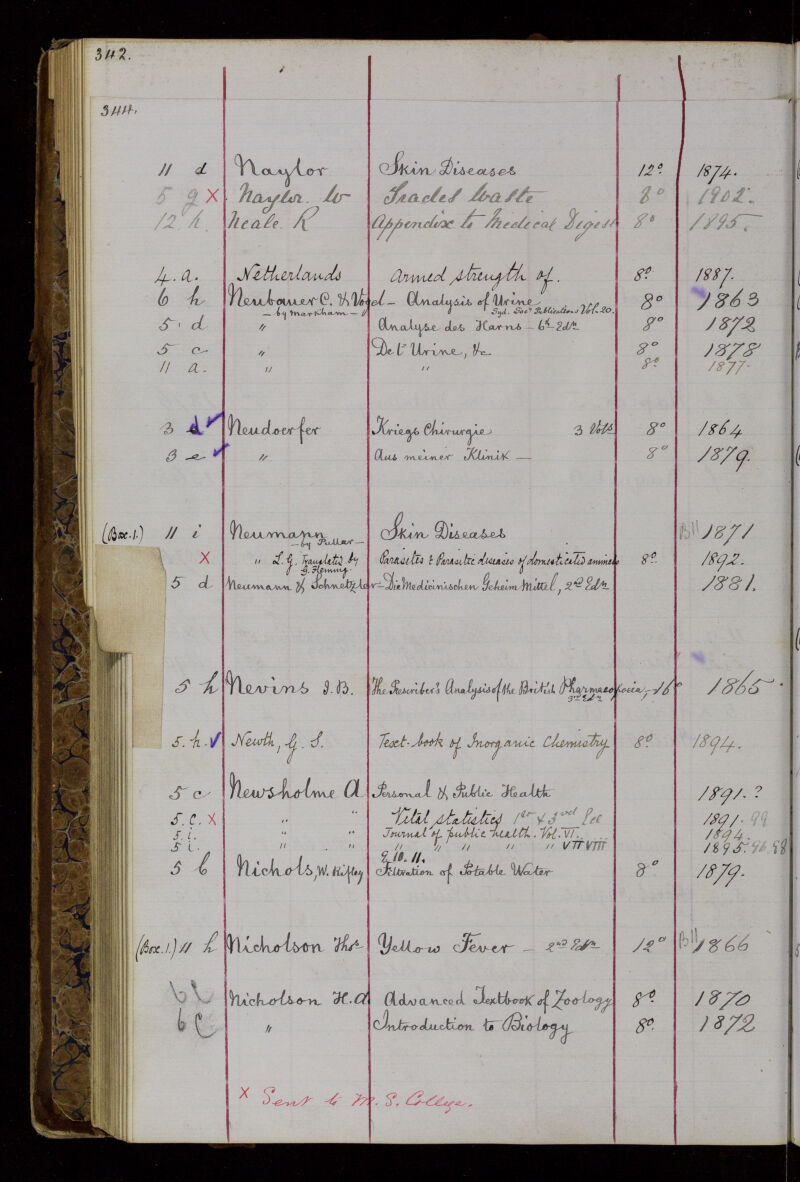 342.
344.
11 d Naylor Skin Diseases 12º 1874.
5 g X Naylor. W Trades Waste 8º 1902.
12. h. Neale. R Appendix to Medical Digest 8º 1895.
4. a. Netherlands Armed strength of. 8º 1887.
6 h Neubauer C. & Vogel - Analysis of Urine 8º 1863
- by Markham - Syd. Socy Publications Vol. 20.
5. d " Analyse des Harns - 6th Edn 8º 1872
5 c " De l'Urine, &c. 8º 1878
11 a. " " 8º 1877.
3 d ✓ Neudoerfer Kriegs Chirurgie 3 Vols 8º 1864
3 e ✓ " Aus meiner Klinik — 8º 1879.
(Box. 1.) 11 i Neumann Skin Diseases B11 1871
- by Pullar -
X " L. G. Translated by Parasites & Parasitic diseases of domesticated animals 8º 1892.
G. Fleming.
5 d Neumann & Schnetzler - Die Medicinischen Geheim Mittel, 2nd Edn 1881.
5 h Nevins J. B. The Prescriber's Analysis of the British Pharmacopoeia, 16º 1865
3rd Edn
5. h. ✓ Newth, G. S. Text-book of Inorganic Chemistry 8º 1894.
5 c Newsholme A Personal & Public Health 1891. ?
5. C. X " " Vital statistics 1st & 3rd Ed 1891. 99
5. i. " " Journal of public health. Vol. VI. 1894.
5 i. " " " " " " " VII VIII 1895. 96. 98
9. 10. 11.
5 b Nichols, W. Ripley Filtration of Potable Water 8º 1879.
(Box. 1.) 11 h Nicholson Thos Yellow Fever - 2nd Edn 12º B11 1866
6 c Nicholson H. A Advanced Textbook of Zoology 8º 1870
6 c " Introduction to Biology 8º 1872
X Sent to M. S. College.